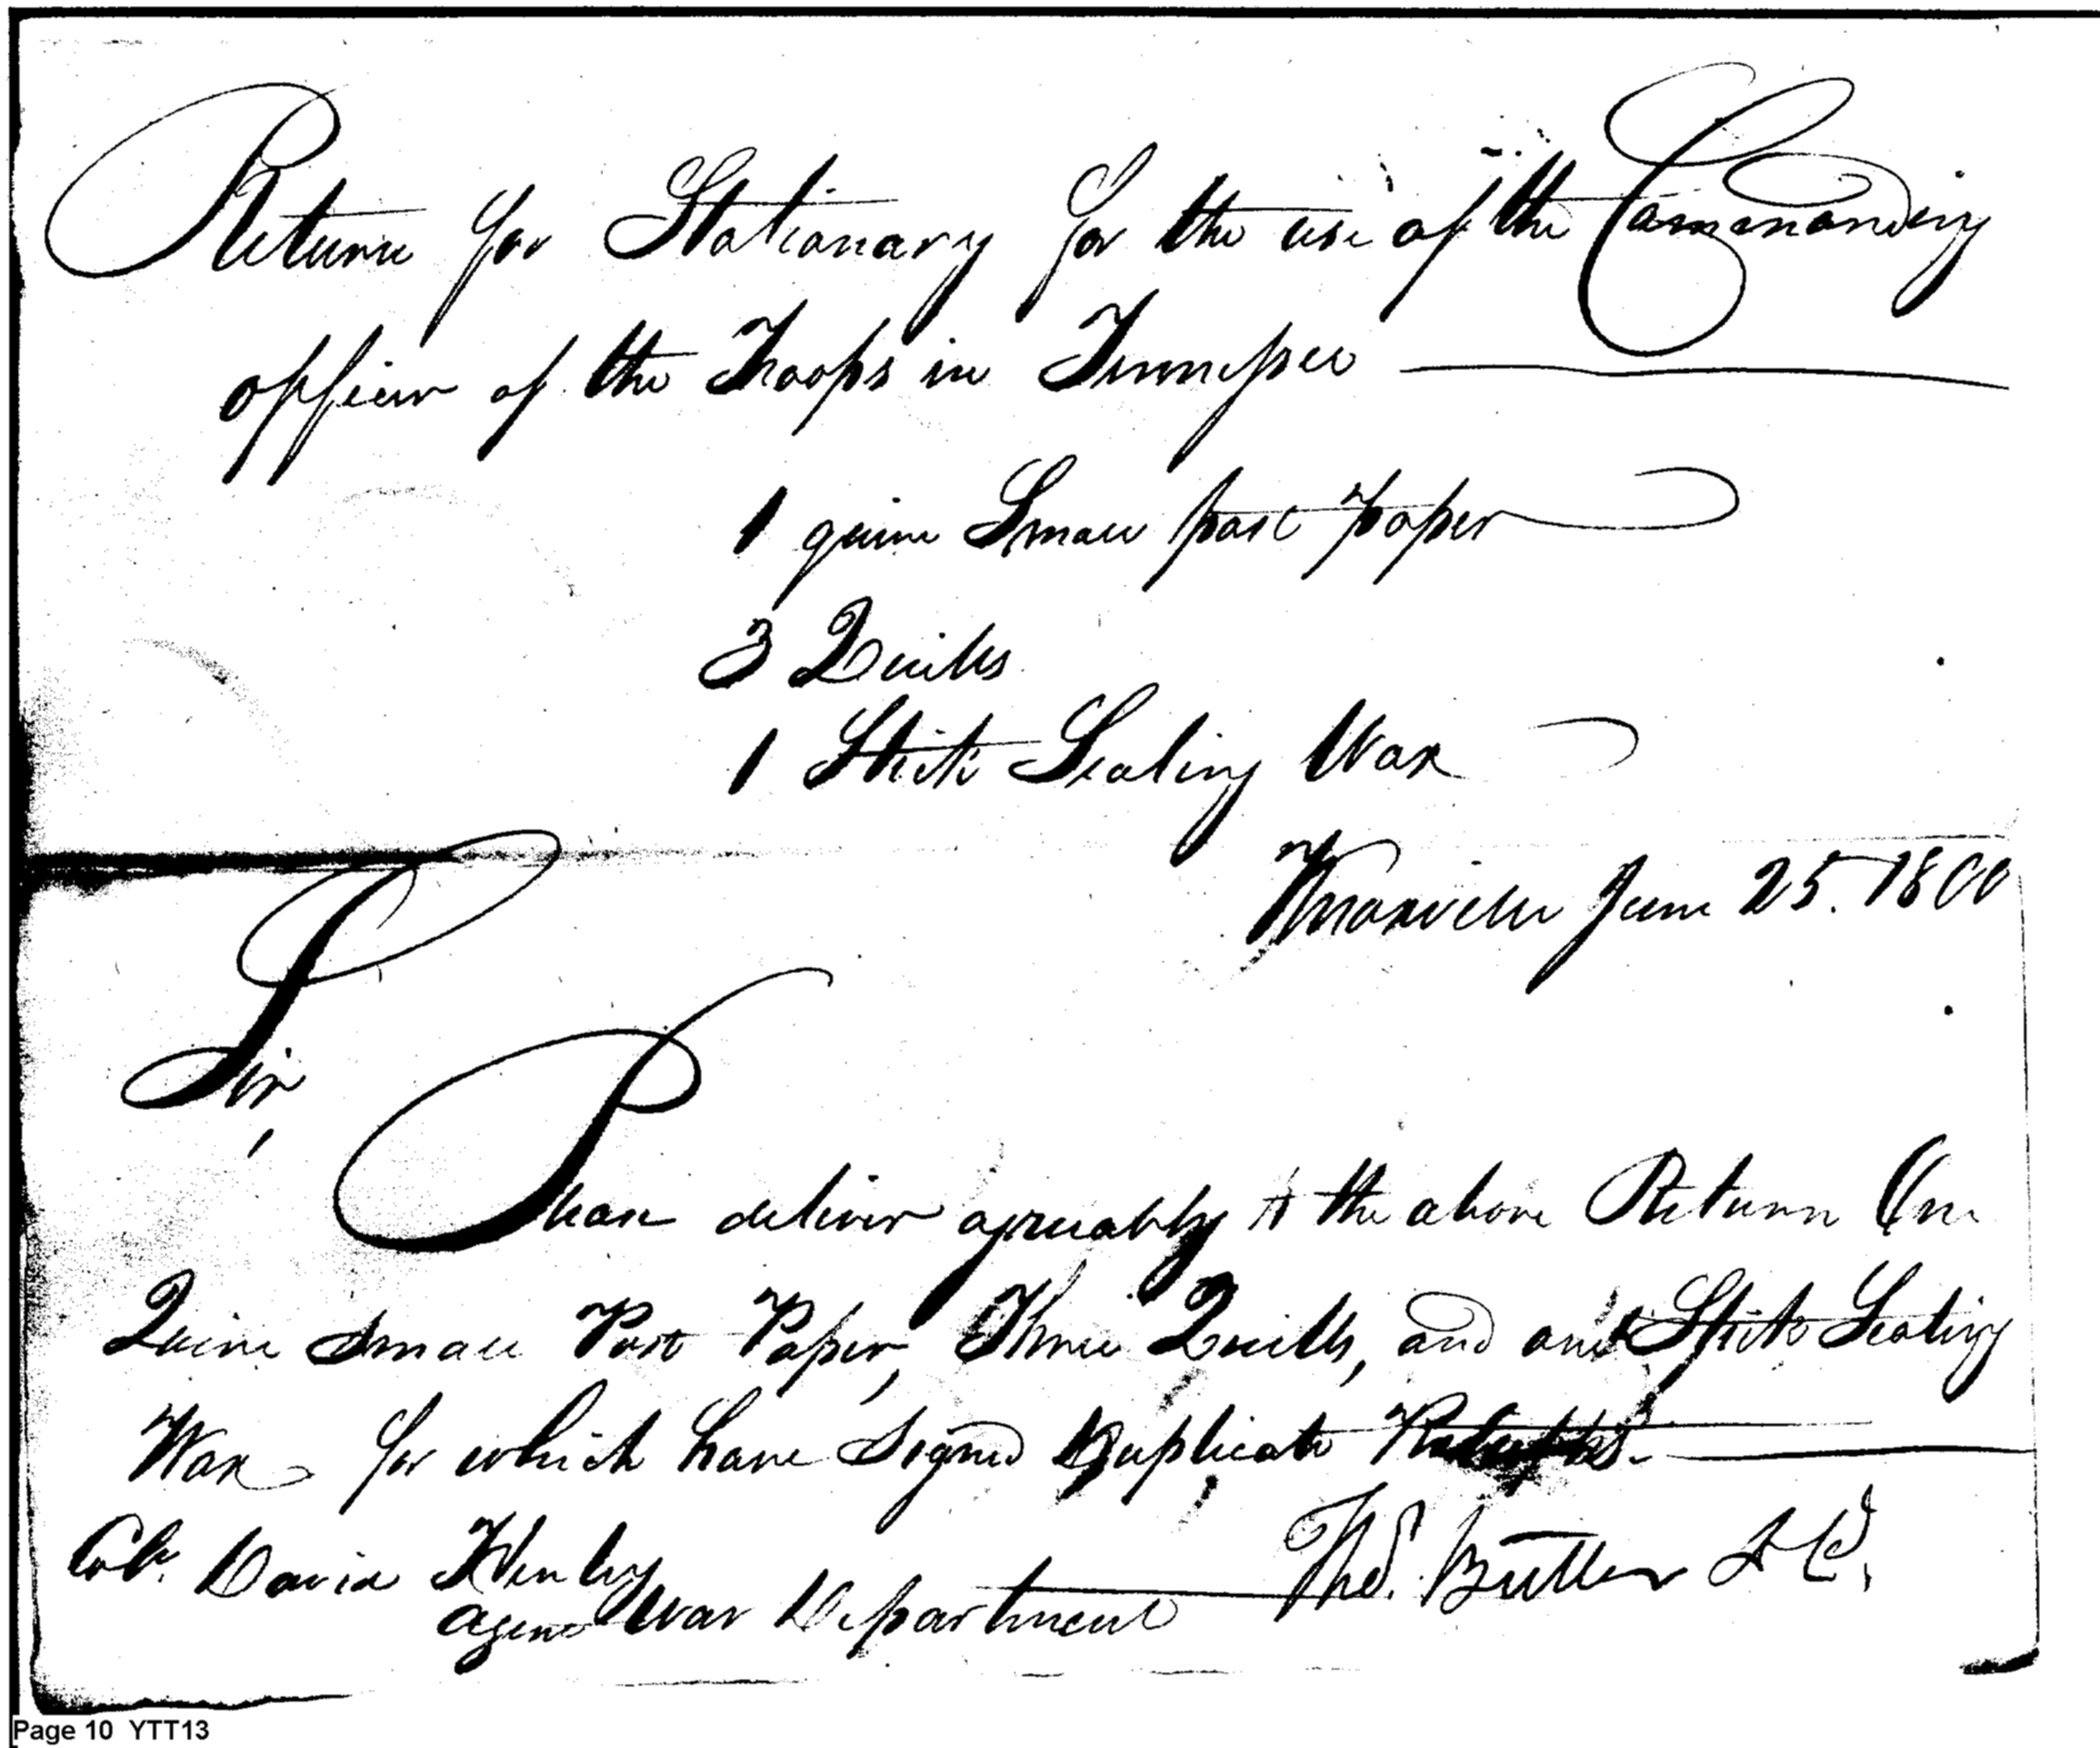 Return for Stationary for the use of the Commanding
officer of the Troops in Tennessee
1 quire Small post paper
3 Quills
1 Stick Sealing Wax
Knoxville June 25. 1800
Sir,
Please deliver agreeably to the above Return One
Quire Small Post Paper, Three Quills, and one Stick Sealing
Wax for which have Signed Duplicate
Col. David Henley
Agent War Department
Thos. Butler
Page 10 YTT13